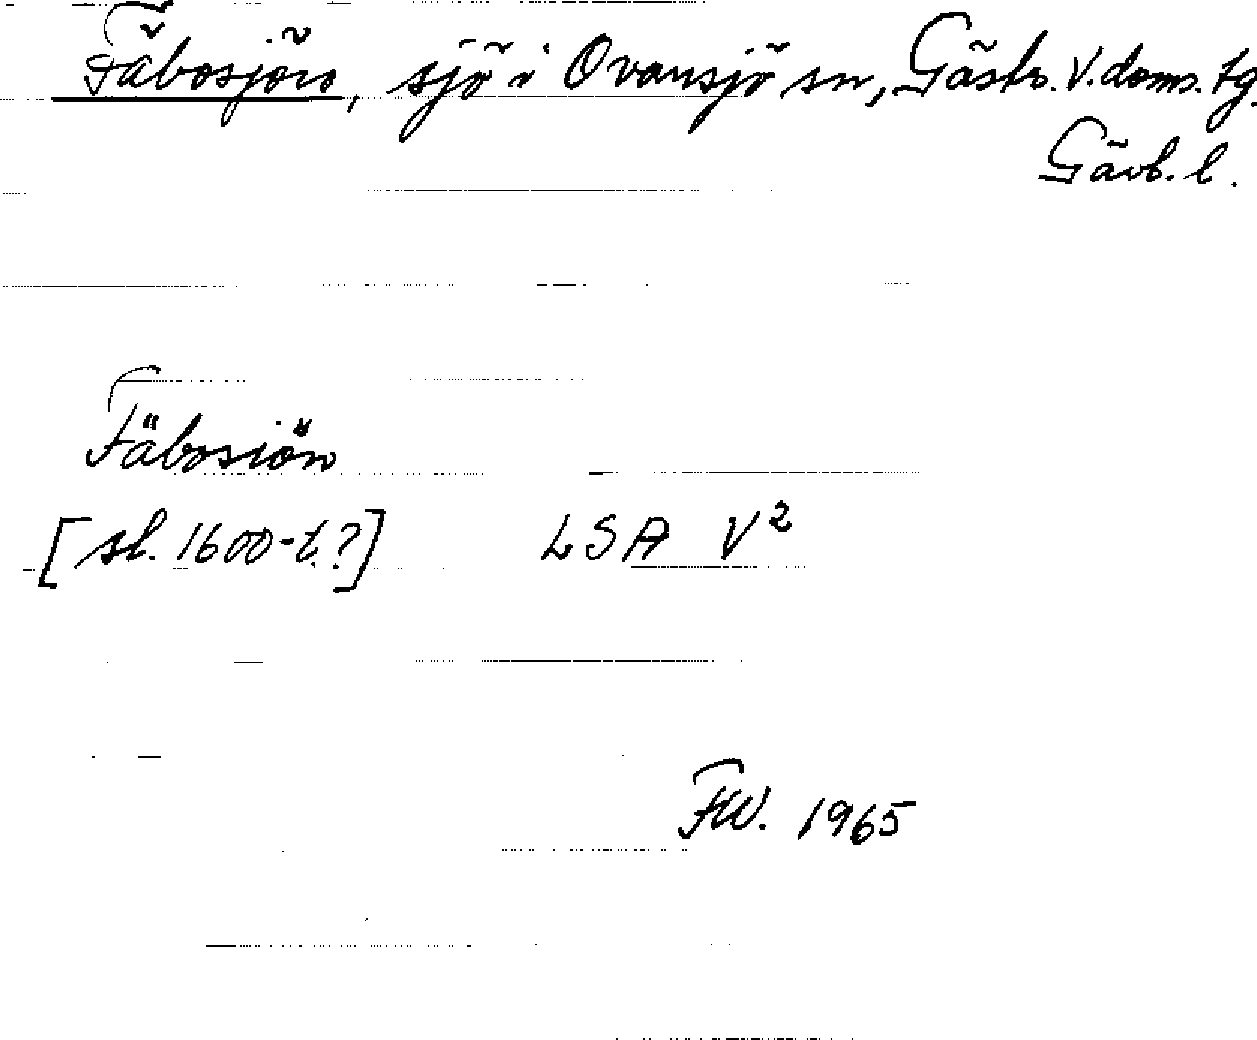 Fäbosjön, sjö i Ovansjö sn, Gästr. V. doms. tg.
Gävb. l.
Fäbosiön
[sl. 1600-t.?] LSA V²
FW. 1965